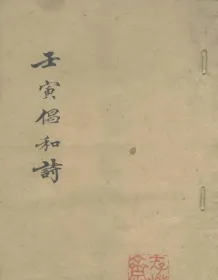 壬寅倡和詩